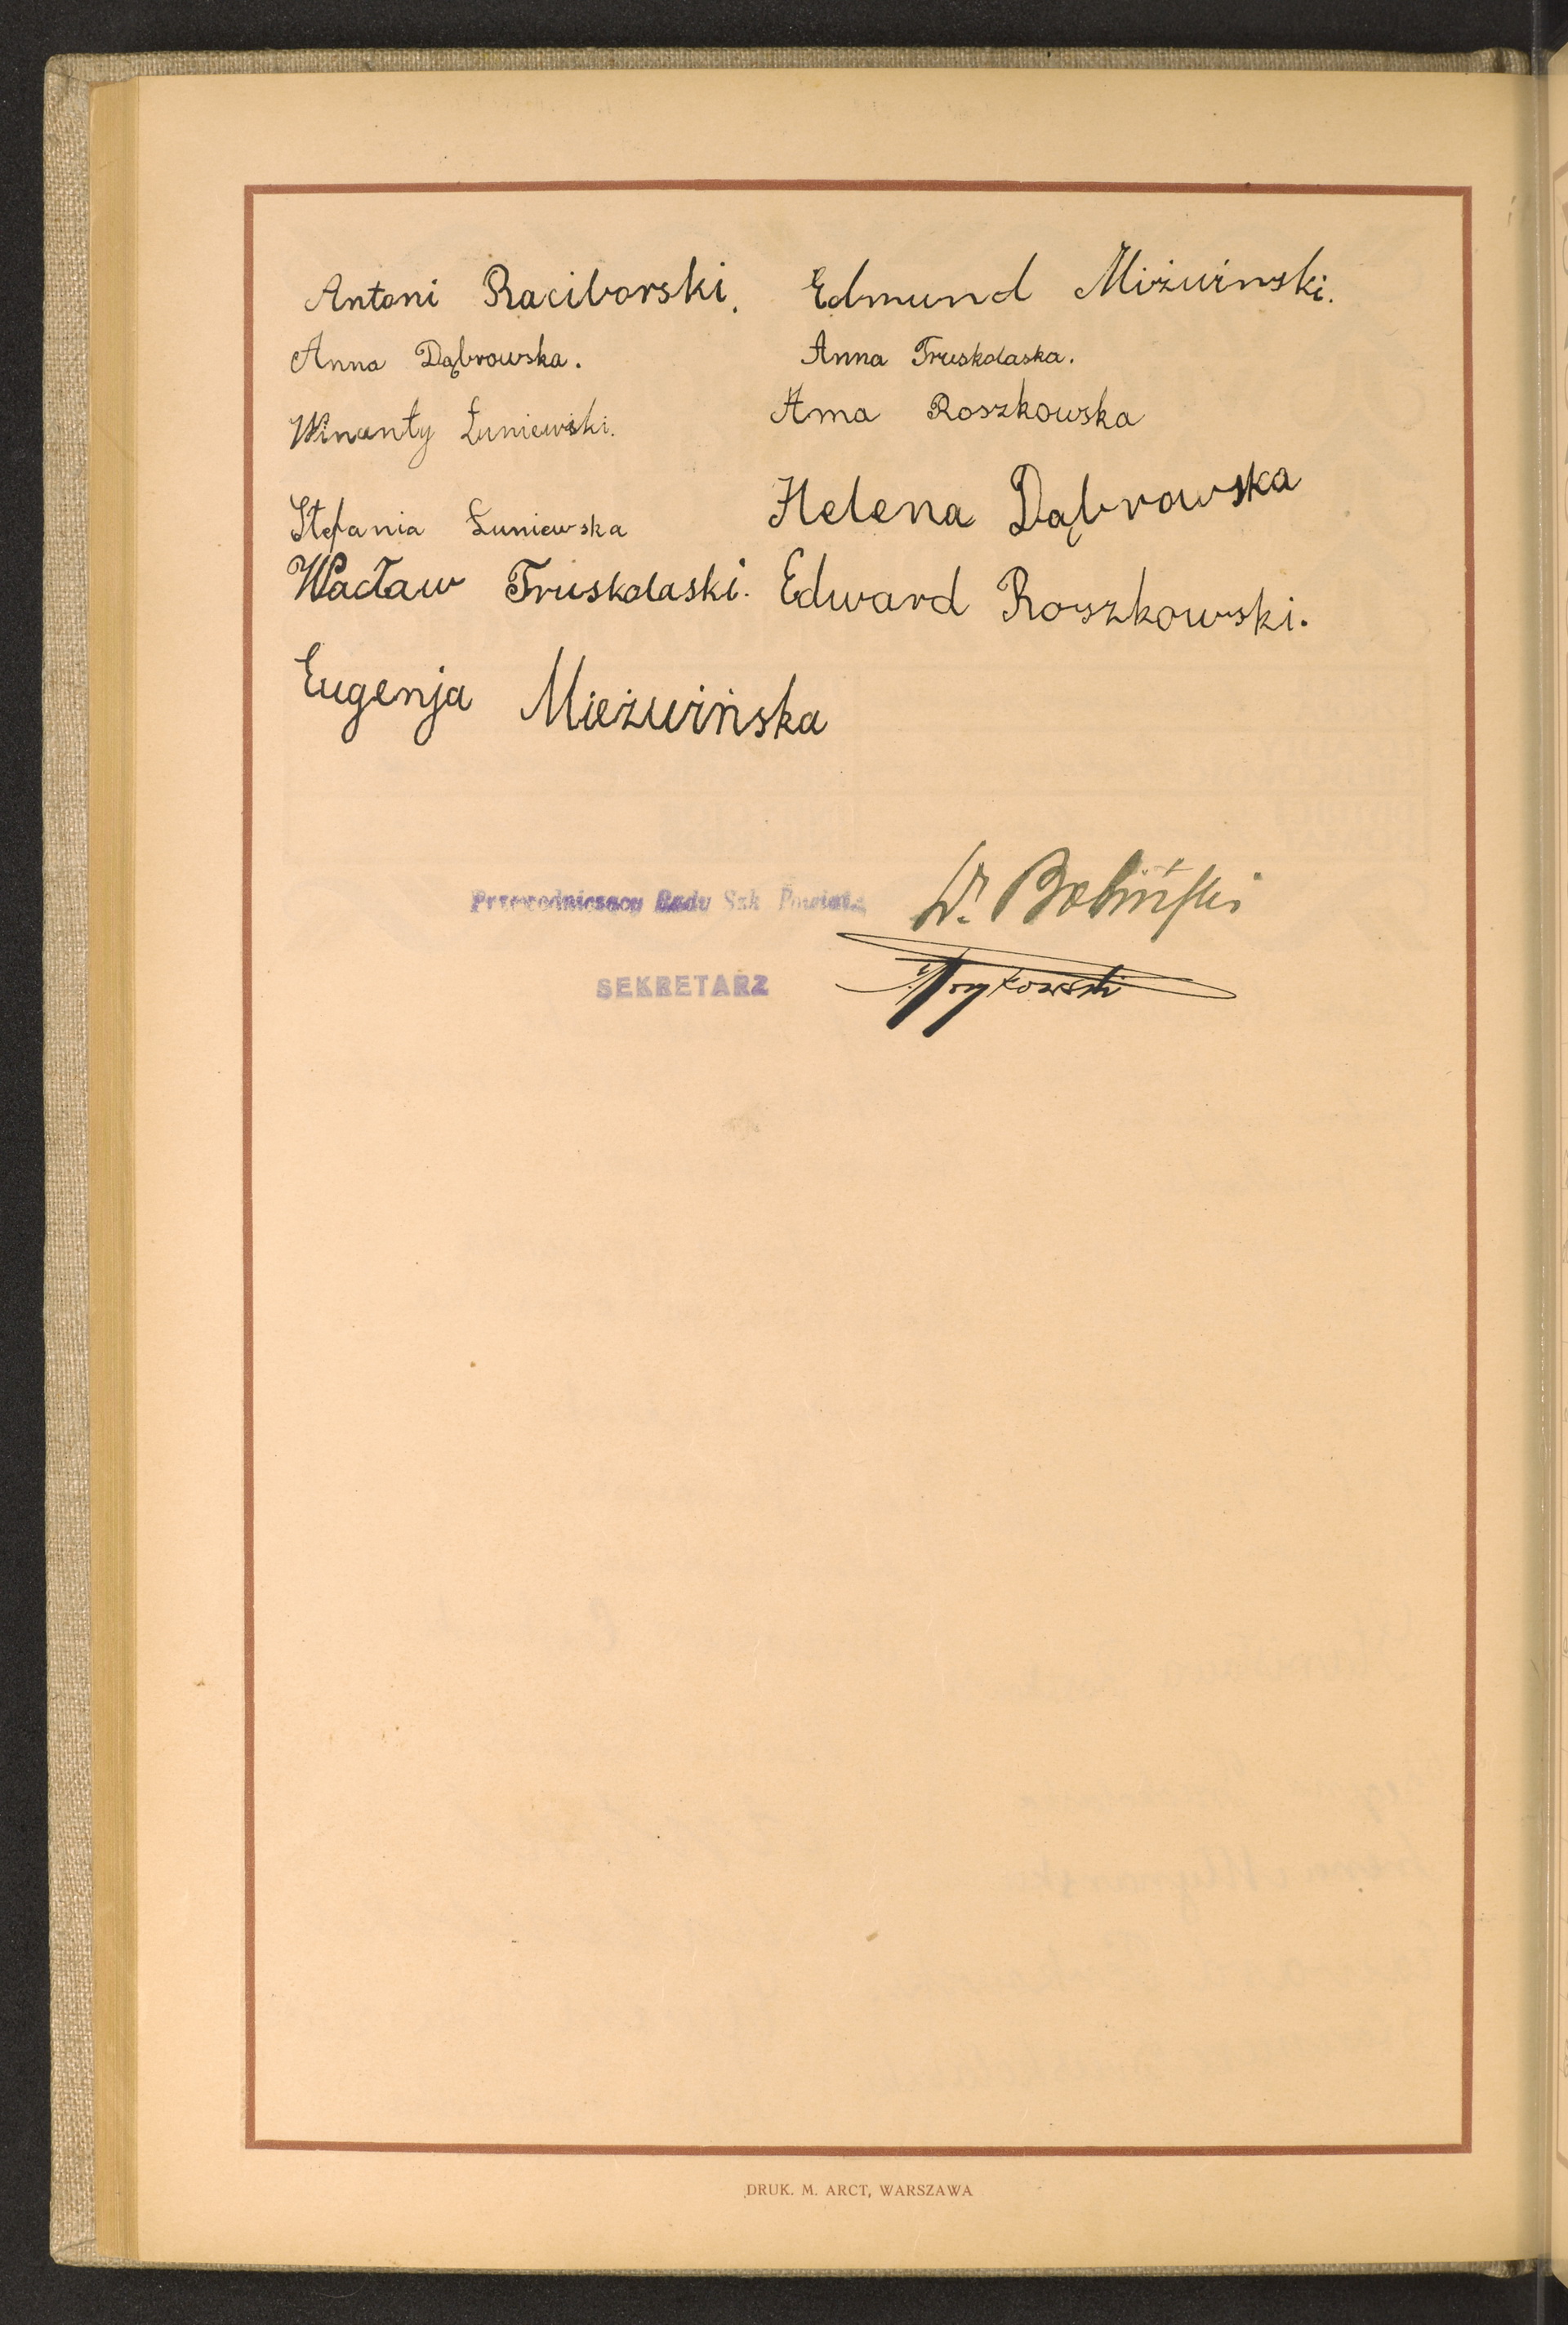 Antoni Raciborski. Edmund Miżwinski.
Anna Dąbrowska. Anna Truskolaska.
Winanty Łuniewski. Anna Roszkowska
Stefania Łuniewska Helena Dąbrowska
Wacław Truskolaski. Edward Roszkowski.
Eugenja Mieżwińska
Przewodniczący Rady Szk Powiat.
SEKRETARZ
DRUK. M. ARCT, WARSZAWA